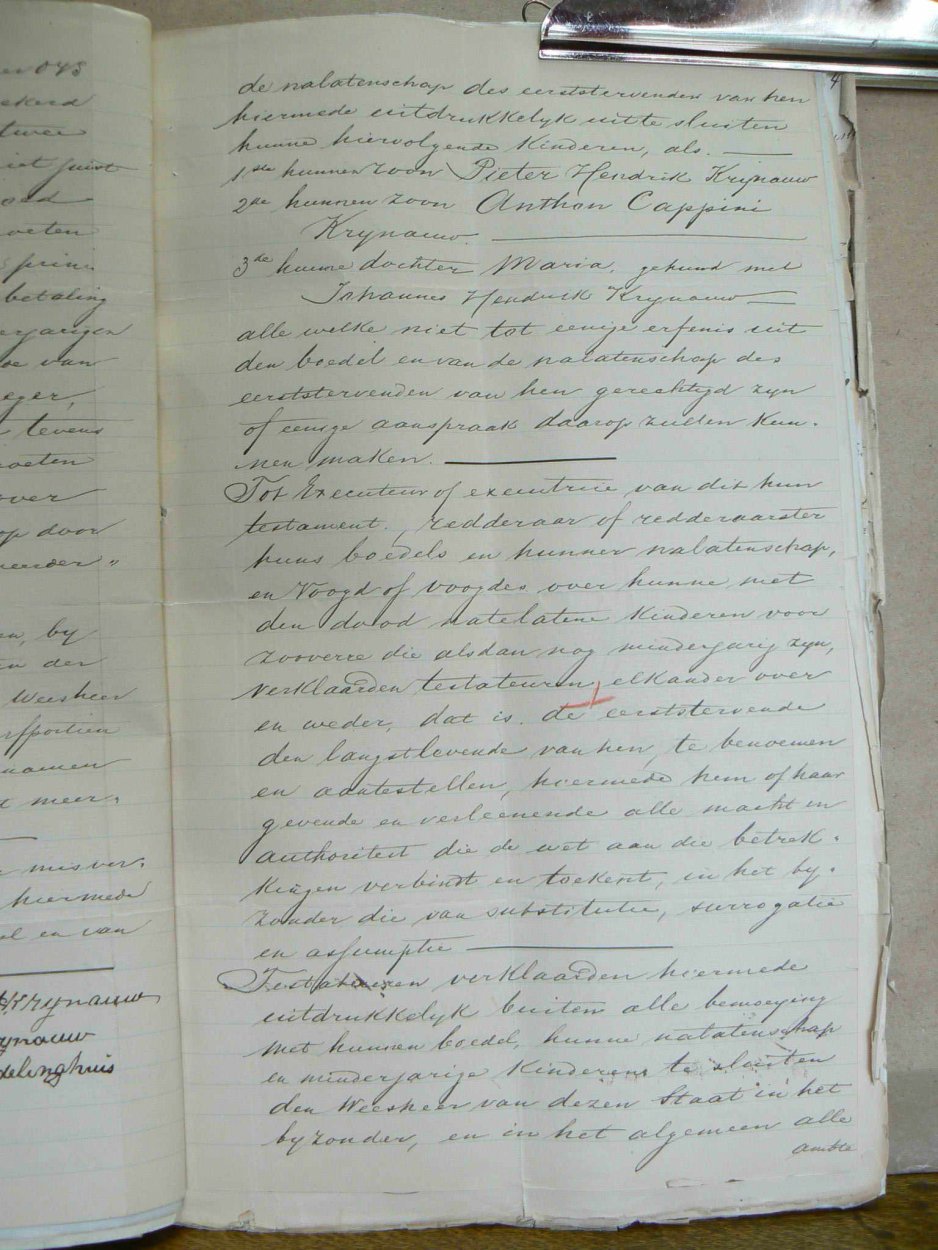 de nalatenschap des eerststervenden van hen
hiermede uitdrukkelyk uit te sluiten
hunne hiervolgende Kinderen, als. —
1ste hunnen zoon Pieter Hendrik Krynauw
2de hunnen zoon Anthon Cappini
Krynauw. —
3de hunne dochter Maria, gehuwd met
Johannes Hendrik Krynauw —
alle welke niet tot eenige erfenis uit
den boedel en van de nalatenschap des
eerststervenden van hen gerechtigd zyn
of eenige aanspraak daarop zullen Kun-
nen maken. —
Tot Executeur of executrice van dit hun
testament, redderaar of redderaarster
huns boedels en hunner nalatenschap,
en Voogd of voogdes over hunne met
den dood natelatene Kinderen voor
zooverre die alsdan nog minderjarig zyn,
verklaarden testateuren, elkander over
en weder, dat is. de eerststervende
den langstlevende van hen, te benoemen
en aantestellen, hiermede hem of haar
gevende en verleenende alle macht en
authoriteit die de wet aan die betrek-
kingen verbindt en toekent, in het by-
zonder die van substitutie, surrogatie
en assumptie —
Testateuren verklaarden hiermede
uitdrukkelyk buiten alle bemoeying
met hunnen boedel, hunne nalatenschap
en minderjarige Kinderen te sluiten
den Weesheer van dezen Staat in het
byzonder, en in het algemeen alle
ambte
4
ekerd
twee
iet juist
oeten
betaling
erjarigen
oe van
eger,
tevens
oeten
over
op door
eerder"
en, by
en der
Weesheer
erfportien
namen
meer-
misver-
hiermede
el en van
Krynauw
ynauw
delinghuis